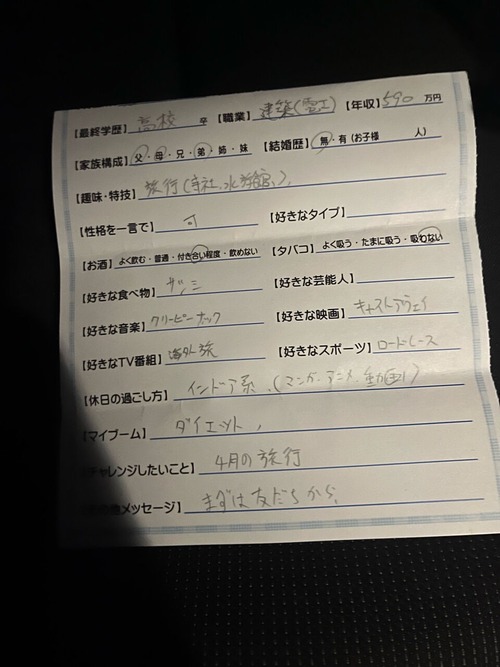 【最終学歴】高校 卒 【職業】建築(電工) 【年収】590 万円
【家族構成】父・母・兄・弟・姉・妹 【結婚歴】無・有(お子様 人)
【趣味・特技】旅行(寺社、水族館、)、
【性格を一言で】 【好きなタイプ】
【お酒】よく飲む・普通・付き合い程度・飲めない 【タバコ】よく吸う・たまに吸う・吸わない
【好きな食べ物】サシミ 【好きな芸能人】
【好きな音楽】クリーピーナッツ 【好きな映画】キャストアウェイ
【好きなTV番組】海外旅 【好きなスポーツ】ロードレース
【休日の過ごし方】インドア系、(マンガ・アニメ・動画)
【マイブーム】ダイエット、
チャレンジしたいこと】4月の旅行
メッセージ】まずは友だちから、